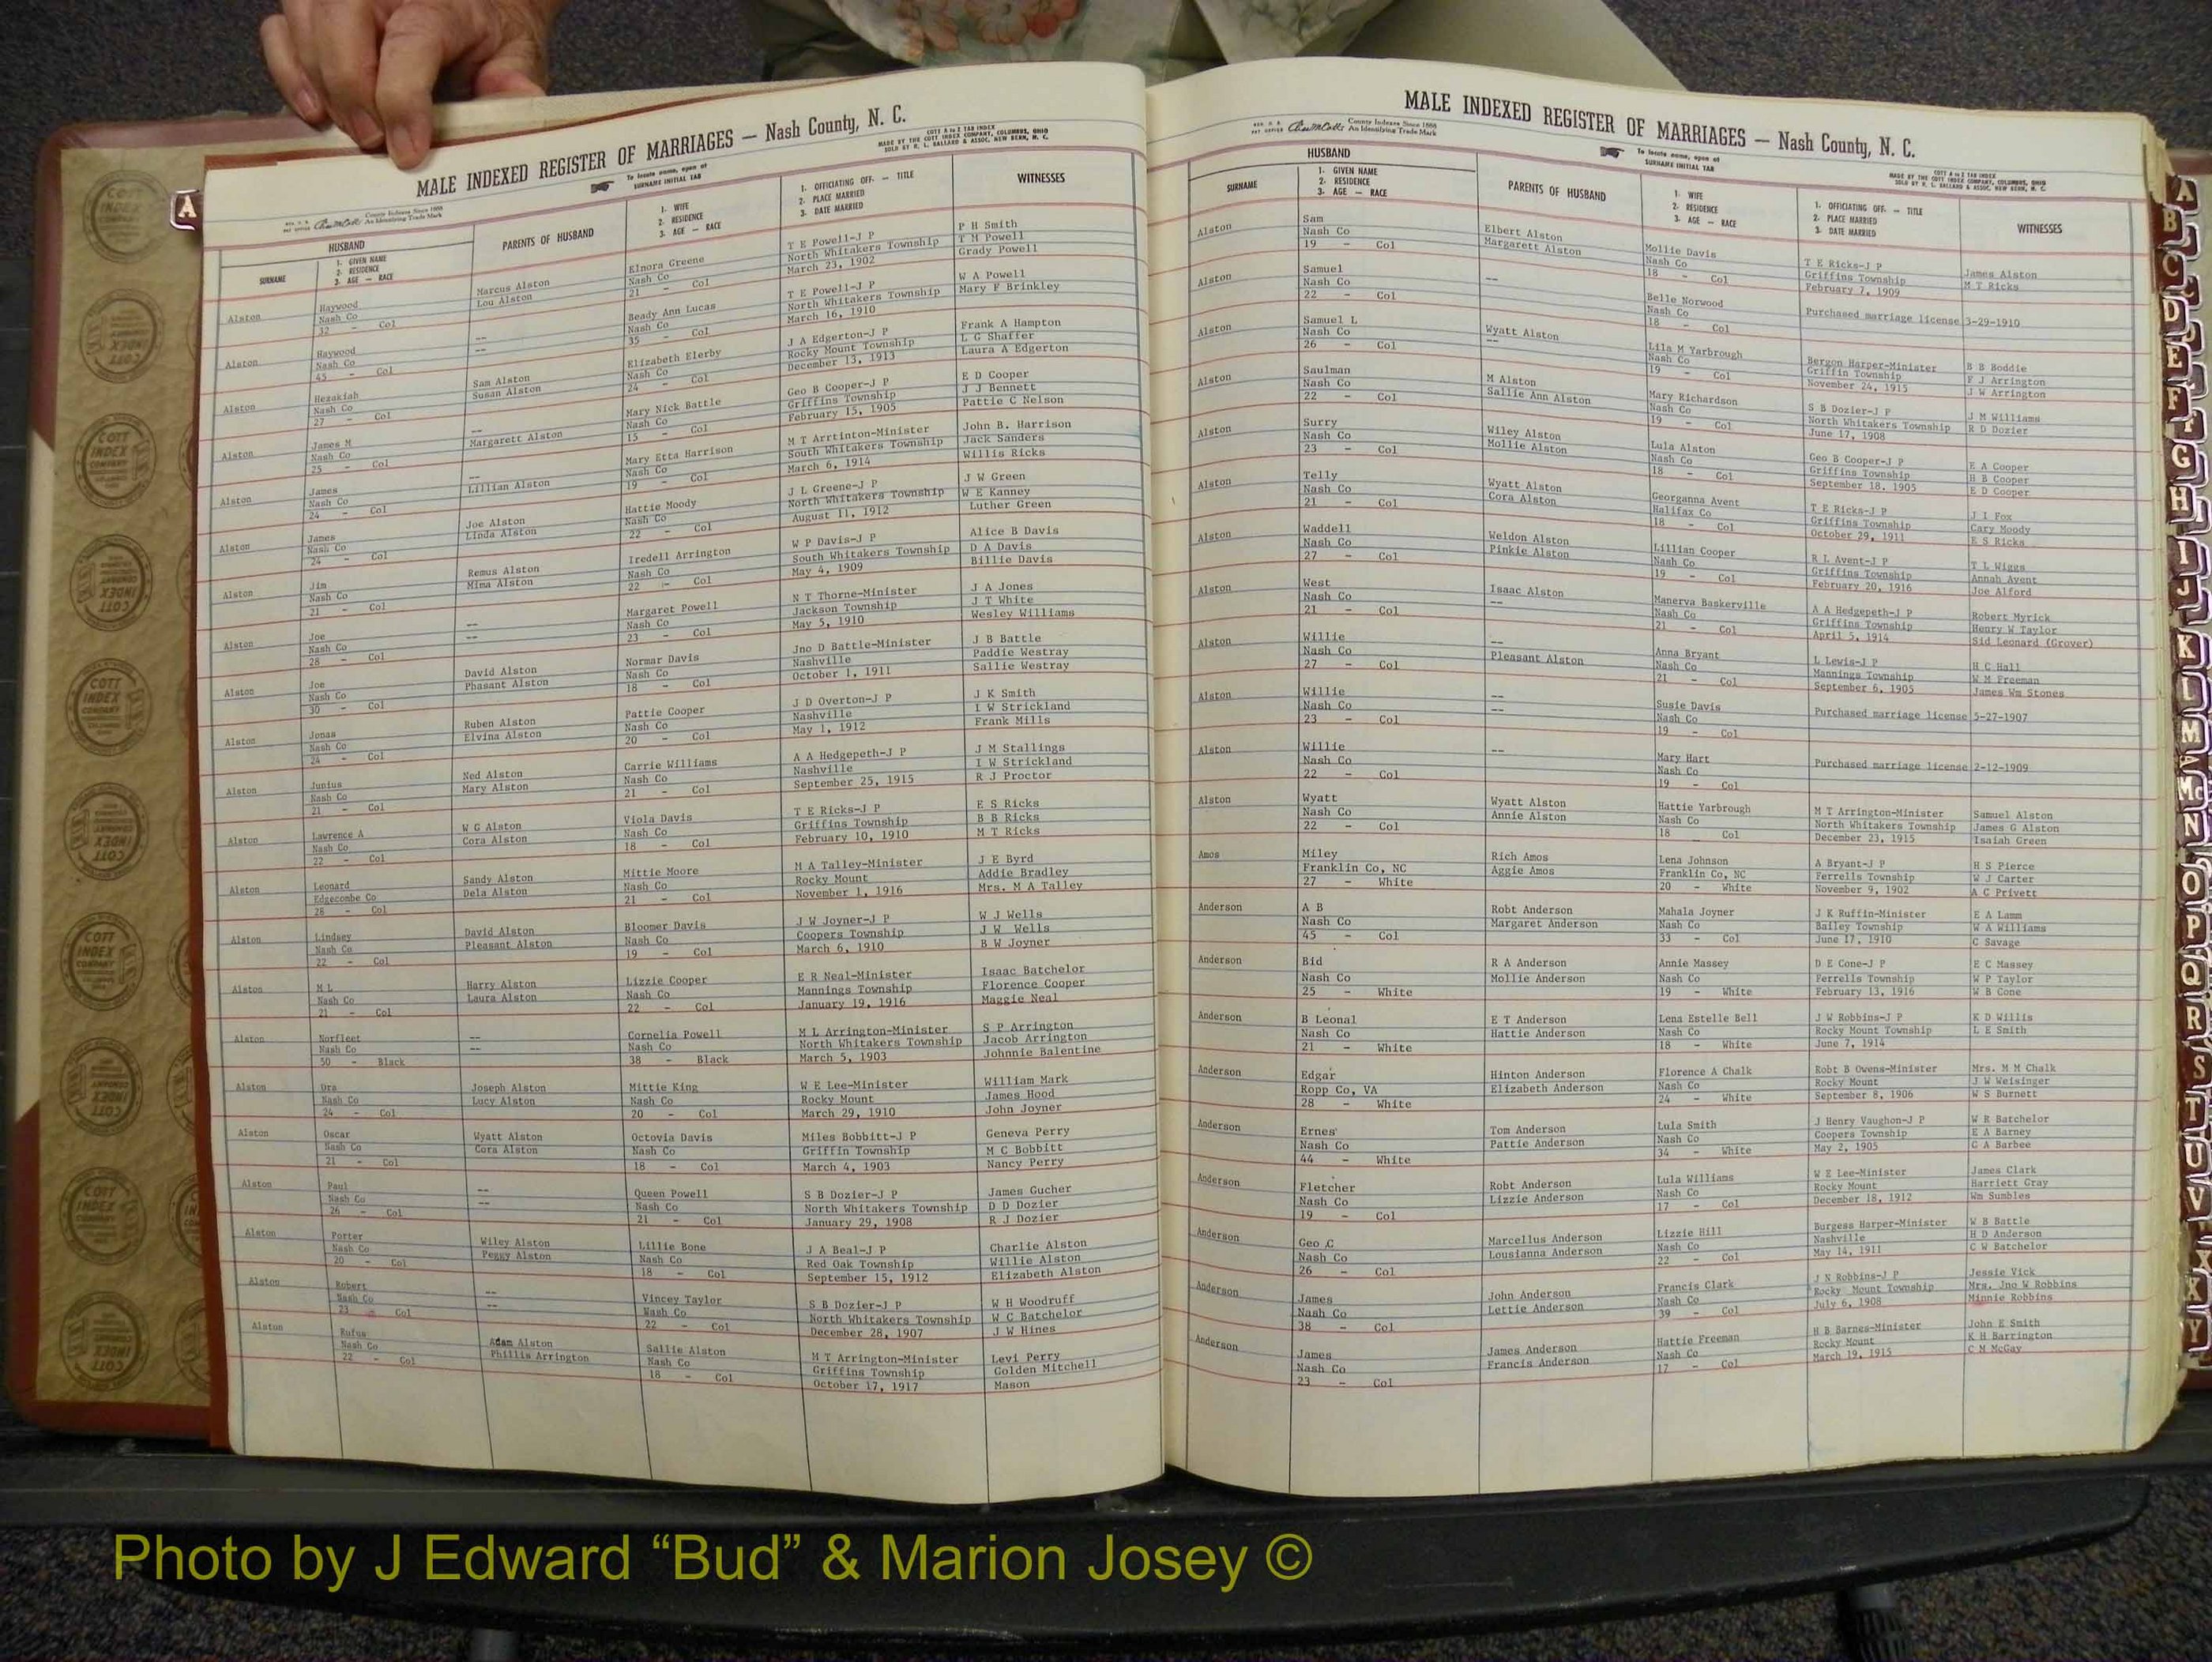 MALE INDEXED REGISTER OF MARRIAGES — Nash County, N. C.
To locate name, open at
SURNAME INITIAL TAB
COTT A to Z TAB INDEX
MADE BY THE COTT INDEX COMPANY, COLUMBUS, OHIO
SOLD BY R. L. BALLARD & ASSOC. NEW BERN, N. C.
County Indexes Since 1888
An Identifying Trade Mark
HUSBAND
SURNAME
1. GIVEN NAME
2. RESIDENCE
3. AGE — RACE
PARENTS OF HUSBAND
1. WIFE
2. RESIDENCE
3. AGE — RACE
1. OFFICIATING OFF. — TITLE
2. PLACE MARRIED
3. DATE MARRIED
WITNESSES
Alston Haywood Marcus Alston Elnora Greene T E Powell-J P P H Smith
Nash Co Lou Alston Nash Co North Whitakers Township T M Powell
32 - Col 21 - Col March 23, 1902 Grady Powell
Alston Haywood -- Beady Ann Lucas T E Powell-J P W A Powell
Nash Co -- Nash Co North Whitakers Township Mary F Brinkley
45 - Col 35 - Col March 16, 1910
Alston Hezakiah Sam Alston Elizabeth Elerby J A Edgerton-J P Frank A Hampton
Nash Co Susan Alston Nash Co Rocky Mount Township L G Shaffer
27 - Col 24 - Col December 13, 1913 Laura A Edgerton
Alston James M -- Mary Nick Battle Geo B Cooper-J P E D Cooper
Nash Co Margarett Alston Nash Co Griffins Township J J Bennett
25 - Col 15 - Col February 15, 1905 Pattie C Nelson
Alston James -- Mary Etta Harrison M T Arrtinton-Minister John B. Harrison
Nash Co Lillian Alston Nash Co South Whitakers Township Jack Sanders
24 - Col 19 - Col March 6, 1914 Willis Ricks
Alston James Joe Alston Hattie Moody J L Greene-J P J W Green
Nash Co Linda Alston Nash Co North Whitakers Township W E Kanney
24 - Col 22 - Col August 11, 1912 Luther Green
Alston Jim Remus Alston Iredell Arrington W P Davis-J P Alice B Davis
Nash Co Mima Alston Nash Co South Whitakers Township D A Davis
21 - Col 22 - Col May 4, 1909 Billie Davis
Alston Joe -- Margaret Powell N T Thorne-Minister J A Jones
Nash Co -- Nash Co Jackson Township J T White
28 - Col 23 - Col May 5, 1910 Wesley Williams
Alston Joe David Alston Normar Davis Jno D Battle-Minister J B Battle
Nash Co Phasant Alston Nash Co Nashville Paddie Westray
30 - Col 18 - Col October 1, 1911 Sallie Westray
Alston Jonas Ruben Alston Pattie Cooper J D Overton-J P J K Smith
Nash Co Elvina Alston Nash Co Nashville I W Strickland
24 - Col 20 - Col May 1, 1912 Frank Mills
Alston Junius Ned Alston Carrie Williams A A Hedgepeth-J P J M Stallings
Nash Co Mary Alston Nash Co Nashville I W Strickland
21 - Col 21 - Col September 25, 1915 R J Proctor
Alston Lawrence A W G Alston Viola Davis T E Ricks-J P E S Ricks
Nash Co Cora Alston Nash Co Griffins Township B B Ricks
22 - Col 18 - Col February 10, 1910 M T Ricks
Alston Leonard Sandy Alston Mittie Moore M A Talley-Minister J E Byrd
Edgecombe Co Dela Alston Nash Co Rocky Mount Addie Bradley
26 - Col 21 - Col November 1, 1916 Mrs. M A Talley
Alston Lindsey David Alston Bloomer Davis J W Joyner-J P W J Wells
Nash Co Pleasant Alston Nash Co Coopers Township J W Wells
22 - Col 19 - Col March 6, 1910 B W Joyner
Alston M L Harry Alston Lizzie Cooper E R Neal-Minister Isaac Batchelor
Nash Co Laura Alston Nash Co Mannings Township Florence Cooper
21 - Col 22 - Col January 19, 1916 Maggie Neal
Alston Norfleet -- Cornelia Powell M L Arrington-Minister S P Arrington
Nash Co -- Nash Co North Whitakers Township Jacob Arrington
50 - Black 38 - Black March 5, 1903 Johnnie Balentine
Alston Ora Joseph Alston Mittie King W E Lee-Minister William Mark
Nash Co Lucy Alston Nash Co Rocky Mount James Hood
24 - Col 20 - Col March 29, 1910 John Joyner
Alston Oscar Wyatt Alston Octovia Davis Miles Bobbitt-J P Geneva Perry
Nash Co Cora Alston Nash Co Griffin Township M C Bobbitt
21 - Col 18 - Col March 4, 1903 Nancy Perry
Alston Paul -- Queen Powell S B Dozier-J P James Gucher
Nash Co -- Nash Co North Whitakers Township D D Dozier
26 - Col 21 - Col January 29, 1908 R J Dozier
Alston Porter Wiley Alston Lillie Bone J A Beal-J P Charlie Alston
Nash Co Peggy Alston Nash Co Red Oak Township Willie Alston
20 - Col 18 - Col September 15, 1912 Elizabeth Alston
Alston Robert -- Vincey Taylor S B Dozier-J P W H Woodruff
Nash Co -- Nash Co North Whitakers Township W C Batchelor
23 - Col 22 - Col December 28, 1907 J W Hines
Alston Rufus Adam Alston Sallie Alston M T Arrington-Minister Levi Perry
Nash Co Phillis Arrington Nash Co Griffins Township Golden Mitchell
22 - Col 18 - Col October 17, 1917 Mason
MALE INDEXED REGISTER OF MARRIAGES — Nash County, N. C.
County Indexes Since 1888
An Identifying Trade Mark
To locate name, open at
SURNAME INITIAL TAB
COTT A to Z TAB INDEX
MADE BY THE COTT INDEX COMPANY, COLUMBUS, OHIO
SOLD BY R. L. BALLARD & ASSOC. NEW BERN, N. C.
HUSBAND
SURNAME
1. GIVEN NAME
2. RESIDENCE
3. AGE — RACE
PARENTS OF HUSBAND
1. WIFE
2. RESIDENCE
3. AGE — RACE
1. OFFICIATING OFF. — TITLE
2. PLACE MARRIED
3. DATE MARRIED
WITNESSES
Alston Sam Elbert Alston Mollie Davis T E Ricks-J P James Alston
Nash Co Margarett Alston Nash Co Griffins Township M T Ricks
19 - Col 18 - Col February 7, 1909
Alston Samuel -- Belle Norwood Purchased marriage license 3-29-1910
Nash Co Nash Co
22 - Col 18 - Col
Alston Samuel L Wyatt Alston Lila M Yarbrough Bergon Harper-Minister B B Boddie
Nash Co -- Nash Co Griffin Township F J Arrington
26 - Col 19 - Col November 24, 1915 J W Arrington
Alston Saulman M Alston Mary Richardson S B Dozier-J P J M Williams
Nash Co Sallie Ann Alston Nash Co North Whitakers Township R D Dozier
22 - Col 19 - Col June 17, 1908
Alston Surry Wiley Alston Lula Alston Geo B Cooper-J P E A Cooper
Nash Co Mollie Alston Nash Co Griffins Township H B Cooper
23 - Col 18 - Col September 18. 1905 E D Cooper
Alston Telly Wyatt Alston Georganna Avent T E Ricks-J P J I Fox
Nash Co Cora Alston Halifax Co Griffins Township Cary Moody
21 - Col 18 - Col October 29, 1911 E S Ricks
Alston Waddell Weldon Alston Lillian Cooper R L Avent-J P T L Wiggs
Nash Co Pinkie Alston Nash Co Griffins Township Annah Avent
27 - Col 19 - Col February 20, 1916 Joe Alford
Alston West Isaac Alston Manerva Baskerville A A Hedgepeth-J P Robert Myrick
Nash Co -- Nash Co Griffins Township Henry W Taylor
21 - Col 21 - Col April 5, 1914 Sid Leonard (Grover)
Alston Willie -- Anna Bryant L Lewis-J P H C Hall
Nash Co Pleasant Alston Nash Co Mannings Township W M Freeman
27 - Col 21 - Col September 6, 1905 James Wm Stones
Alston Willie -- Susie Davis Purchased marriage license 5-27-1907
Nash Co -- Nash Co
23 - Col 19 - Col
Alston Willie -- Mary Hart Purchased marriage license 2-12-1909
Nash Co Nash Co
22 - Col 19 - Col
Alston Wyatt Wyatt Alston Hattie Yarbrough M T Arrington-Minister Samuel Alston
Nash Co Annie Alston Nash Co North Whitakers Township James G Alston
22 - Col 18 Col December 23, 1915 Isaiah Green
Amos Miley Rich Amos Lena Johnson A Bryant-J P H S Pierce
Franklin Co, NC Aggie Amos Franklin Co, NC Ferrells Township W J Carter
27 - White 20 - White November 9, 1902 A C Privett
Anderson A B Robt Anderson Mahala Joyner J K Ruffin-Minister E A Lamm
Nash Co Margaret Anderson Nash Co Bailey Township W A Williams
45 - Col 33 - Col June 17, 1910 C Savage
Anderson Bid R A Anderson Annie Massey D E Cone-J P E C Massey
Nash Co Mollie Anderson Nash Co Ferrells Township W P Taylor
25 - White 19 - White February 13, 1916 W B Cone
Anderson B Leonal E T Anderson Lena Estelle Bell J W Robbins-J P K D Willis
Nash Co Hattie Anderson Nash Co Rocky Mount Township L E Smith
21 - White 18 - White June 7, 1914
Anderson Edgar Hinton Anderson Florence A Chalk Robt B Owens-Minister Mrs. M M Chalk
Ropp Co, VA Elizabeth Anderson Nash Co Rocky Mount J W Weisinger
28 - White 24 - White September 8, 1906 W S Burnett
Anderson Ernes' Tom Anderson Lula Smith J Henry Vaughon-J P W R Batchelor
Nash Co Pattie Anderson Nash Co Coopers Township E A Barney
44 - White 34 - White May 2, 1905 G A Barbee
Anderson Fletcher Robt Anderson Lula Williams W E Lee-Minister James Clark
Nash Co Lizzie Anderson Nash Co Rocky Mount Harriett Gray
19 - Col 17 - Col December 18, 1912 Wm Sumbles
Anderson Geo C Marcellus Anderson Lizzie Hill Burgess Harper-Minister W B Battle
Nash Co Lousianna Anderson Nash Co Nashville H D Anderson
26 - Col 22 - Col May 14, 1911 C W Batchelor
Anderson James John Anderson Francis Clark J N Robbins-J P Jessie Vick
Nash Co Lettie Anderson Nash Co Rocky Mount Township Mrs. Jno W Robbins
38 - Col 39 - Col July 6, 1908 Minnie Robbins
Anderson James James Anderson Hattie Freeman H B Barnes-Minister John E Smith
Nash Co Francis Anderson Nash Co Rocky Mount K H Barrington
23 - Col 17 - Col March 19, 1915 C M McGay
A
A
B
C
D
E
F
G
H
I
J
K
L
M
Mc
N
O
P
Q
R
S
T
U
V
X
Y
COTT
INDEX
COMPANY
Photo by J Edward “Bud” & Marion Josey ©